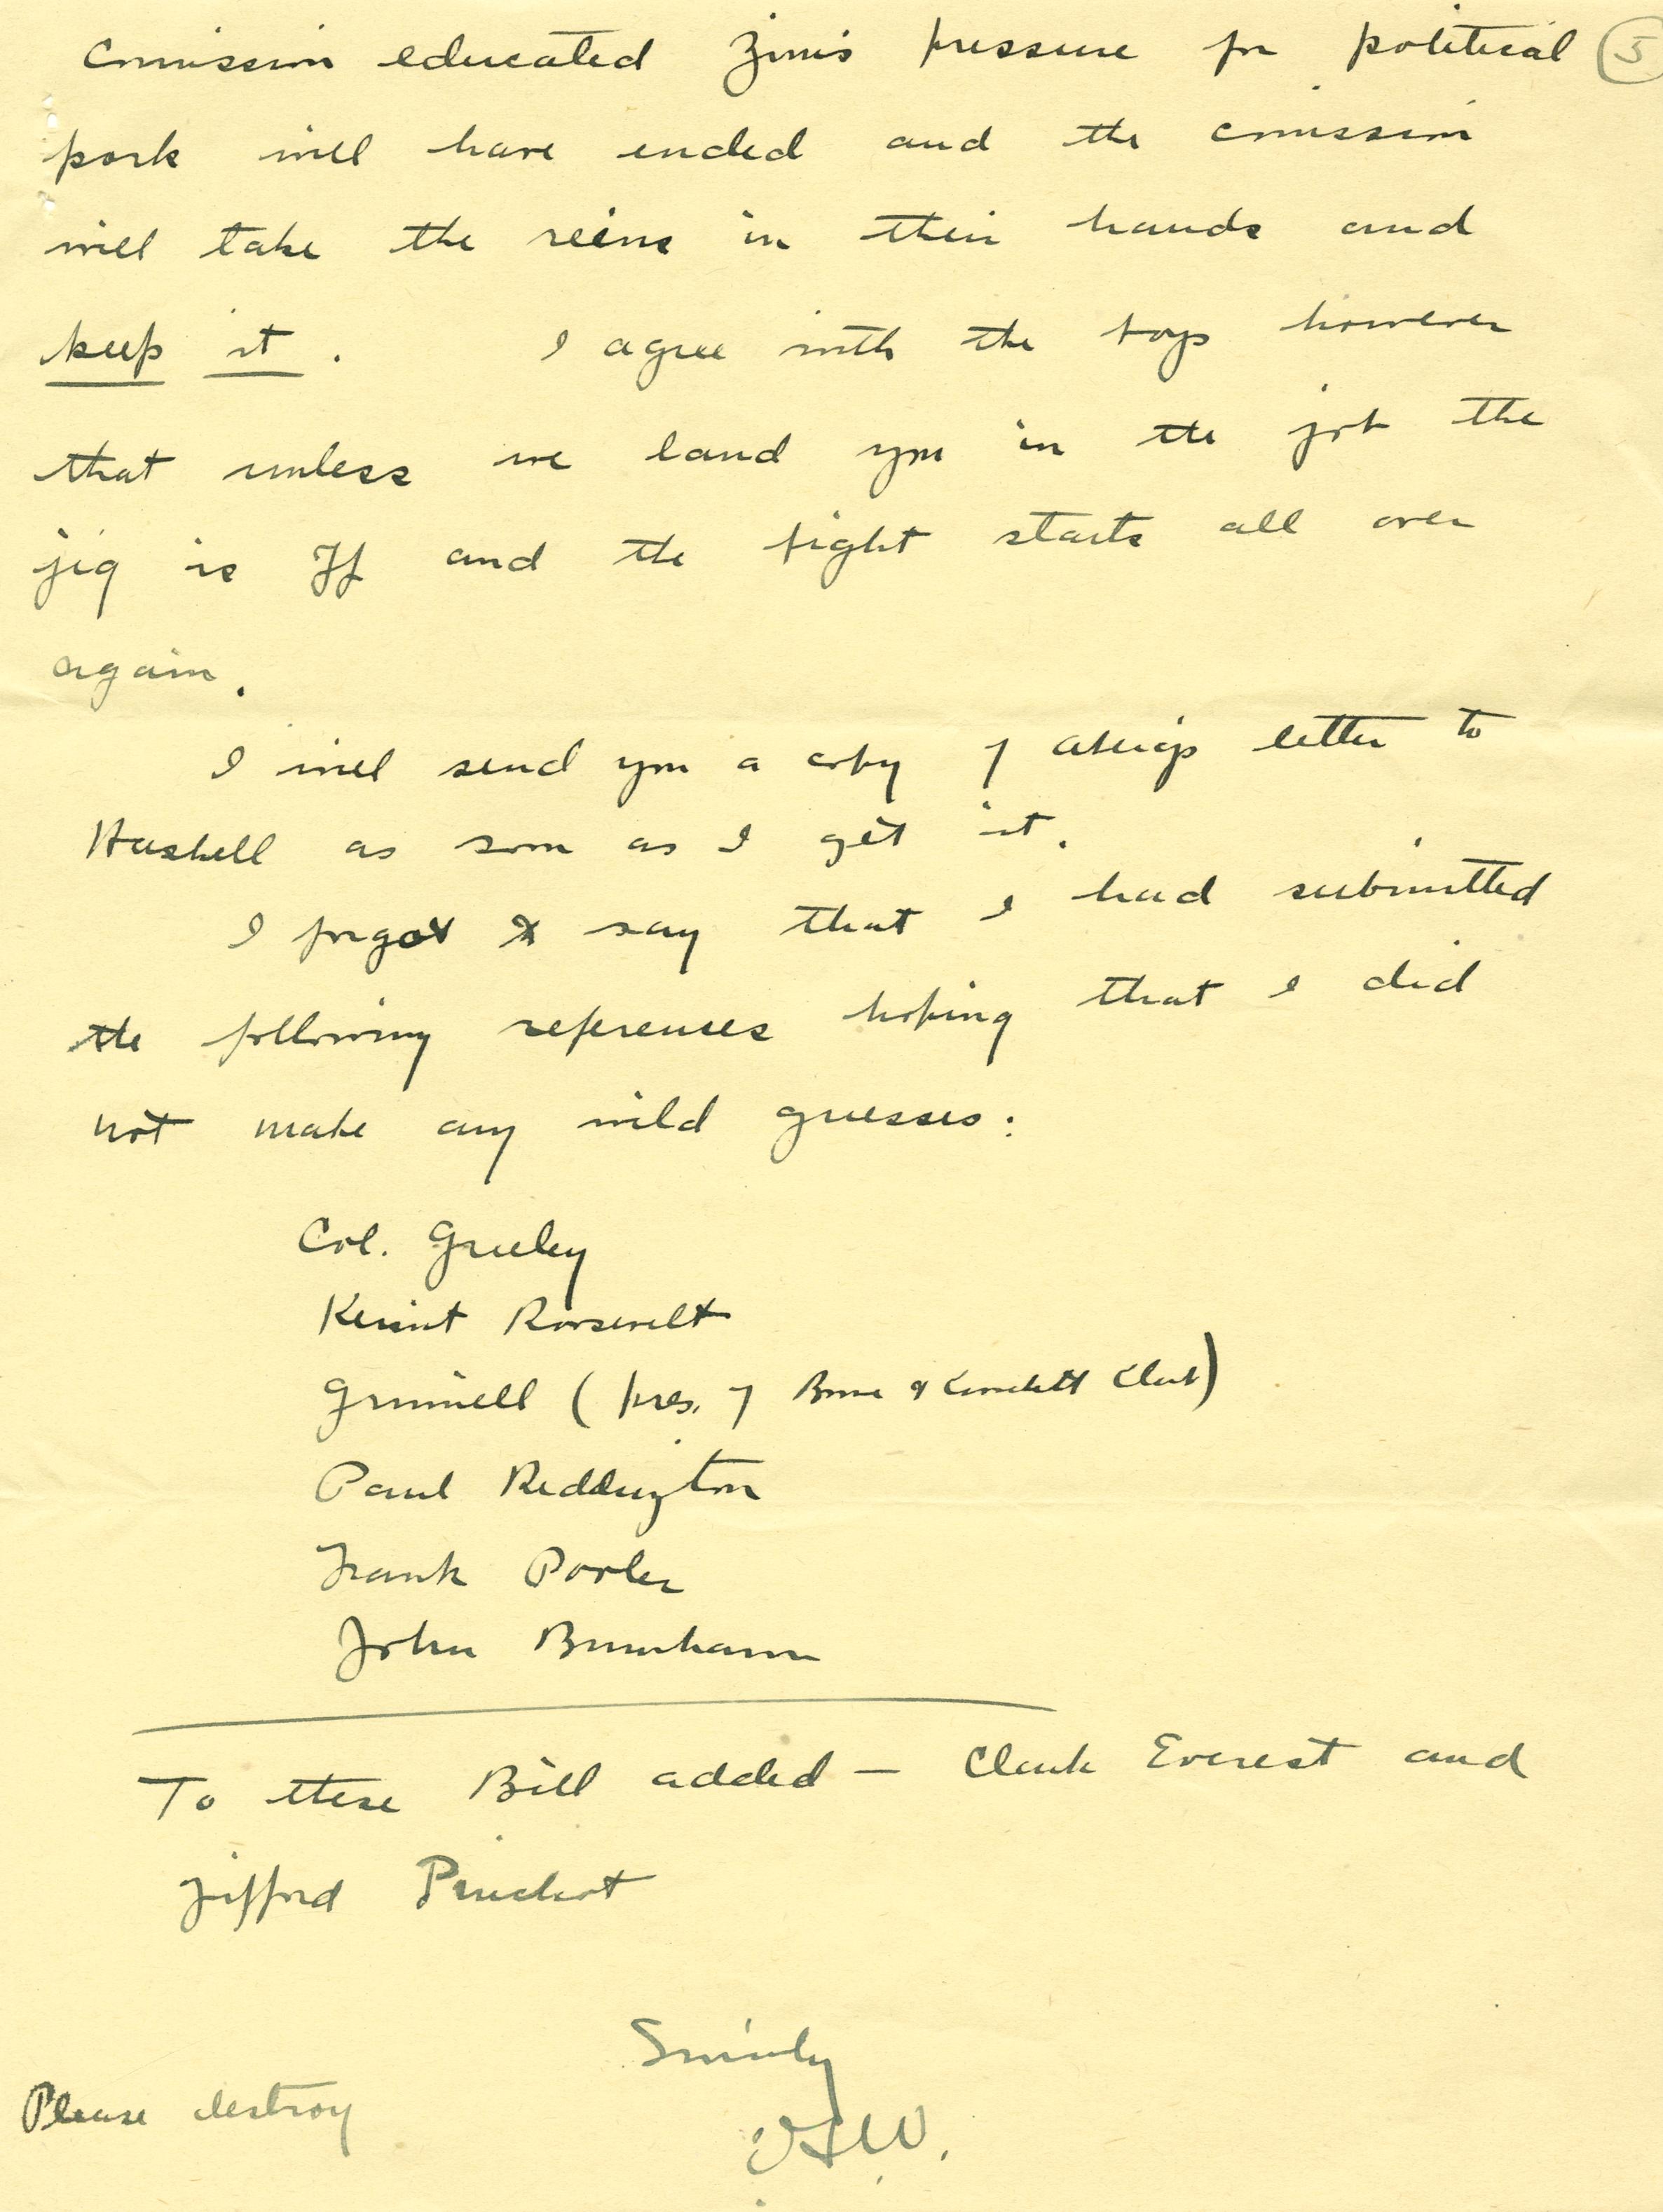 Commission educated Zim's pressure for political ⑤
pork will have ended and the comission
will take the reins in their hands and
keep it. I agree with the boys however
that unless we land you in the job the
jig is off and the fight starts all over
again.
I will send you a copy of letter to
Haskell as soon as I get it.
I forgot to say that I had submitted
the following references hoping that I did
not make any wild guesses:
Col. Greeley
Kermit Roosevelt
Grinnell (pres. of Boone & Crockett Club)
Paul Reddington
Frank
John Burnham
To these Bill added — Clark Everest and
Gifford Pinchot
Sincerely
Please destroy